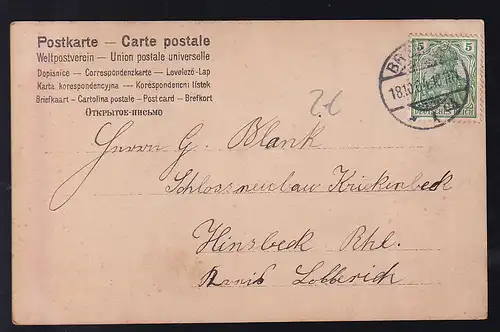 Postkarte — Carte postale
Weltpostverein — Union postale universelle
Dopisnice — Correspondenzkarte — Levelező-Lap
Karta korespondencyjna — Korespondenční lístek
Briefkaart — Cartolina postale — Post card — Brefkort
ОТКРЫТОЕ-ПИСЬМО
5 5
2.-€
Herrn G. Blank
Schlossneubau Krickenbeck
Hinsbeck Rhl.
Kreis Lobberich